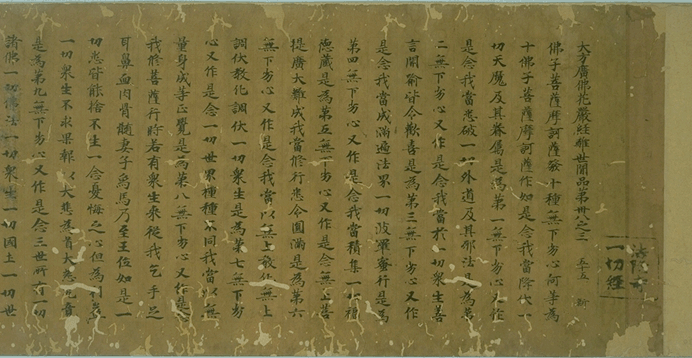 法隆寺
一切經
大方廣佛花嚴經離世間品第卅之三 五十五
佛子菩薩摩訶薩發十種無下劣心何等為
十佛子菩薩摩訶薩作如是念我當降伏一
切天魔及其眷屬是為第一無下劣心又作
是念我當悉破一切外道及其邪法是為第
二無下劣心又作是念我當於一切衆生善
言開喻皆令歡喜是為第三無下劣心又作
是念我當成滿遍法界一切波羅蜜行是為
第四無下劣心又作是念我當積集一切福
德藏是為第五無下劣心又作是念無上菩
提廣大難成我當修行悉令圓滿是為第六
無下劣心又作是念我當以無上教化無上
調伏教化調伏一切衆生是為第七無下劣
心又作是念一切世界種種不同我當以無
量身成等正覺是為第八無下劣心又作是
念我修菩薩行時若有衆生來從我乞手足
耳鼻血肉骨髓妻子象馬乃至王位如是一
切悉皆能捨不生一念憂悔之心但為利益
一切衆生不求果報以大悲為首大慈究竟
是為第九無下劣心又作是念三世所有一切
諸佛一切佛法一切衆生一切國土一切世